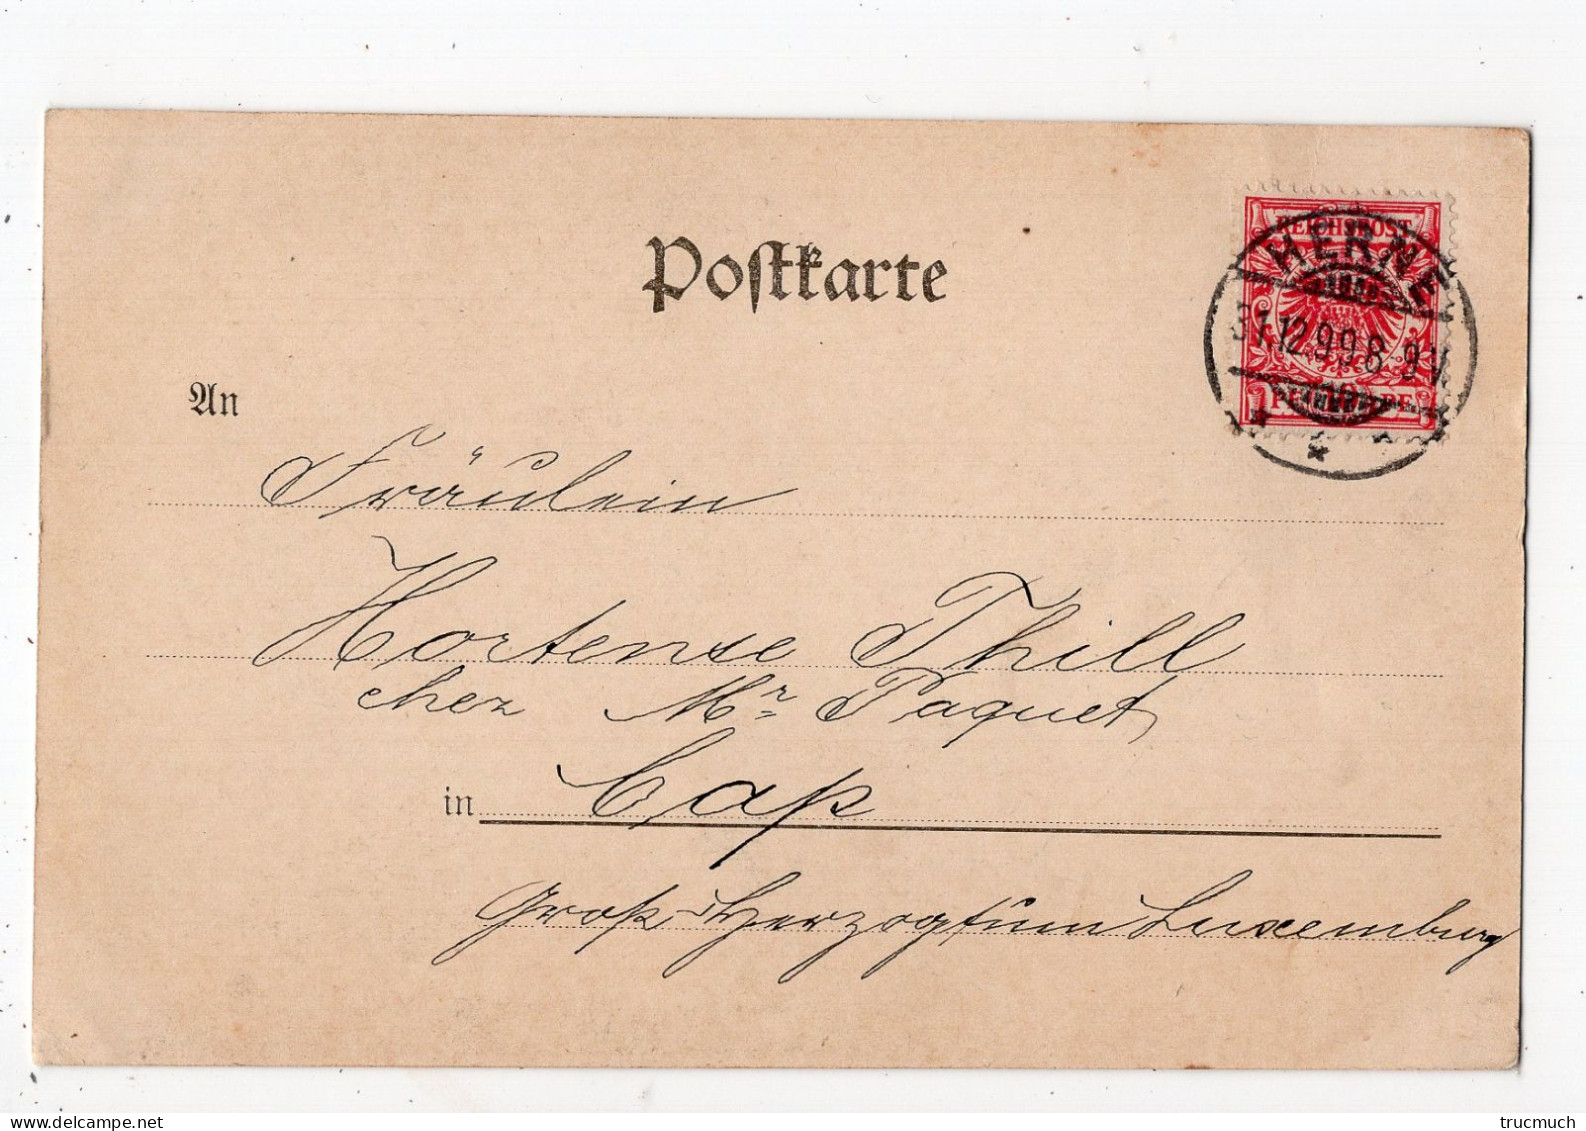 Postkarte
REICHSPOST
HERNE
31.12.99.8-9V.
10
An
Fräulein
Hortense Thill
chez Mr. Paquet
in Cap
Groß-Herzogtum Luxemburg
delcampe.net
trucmuch